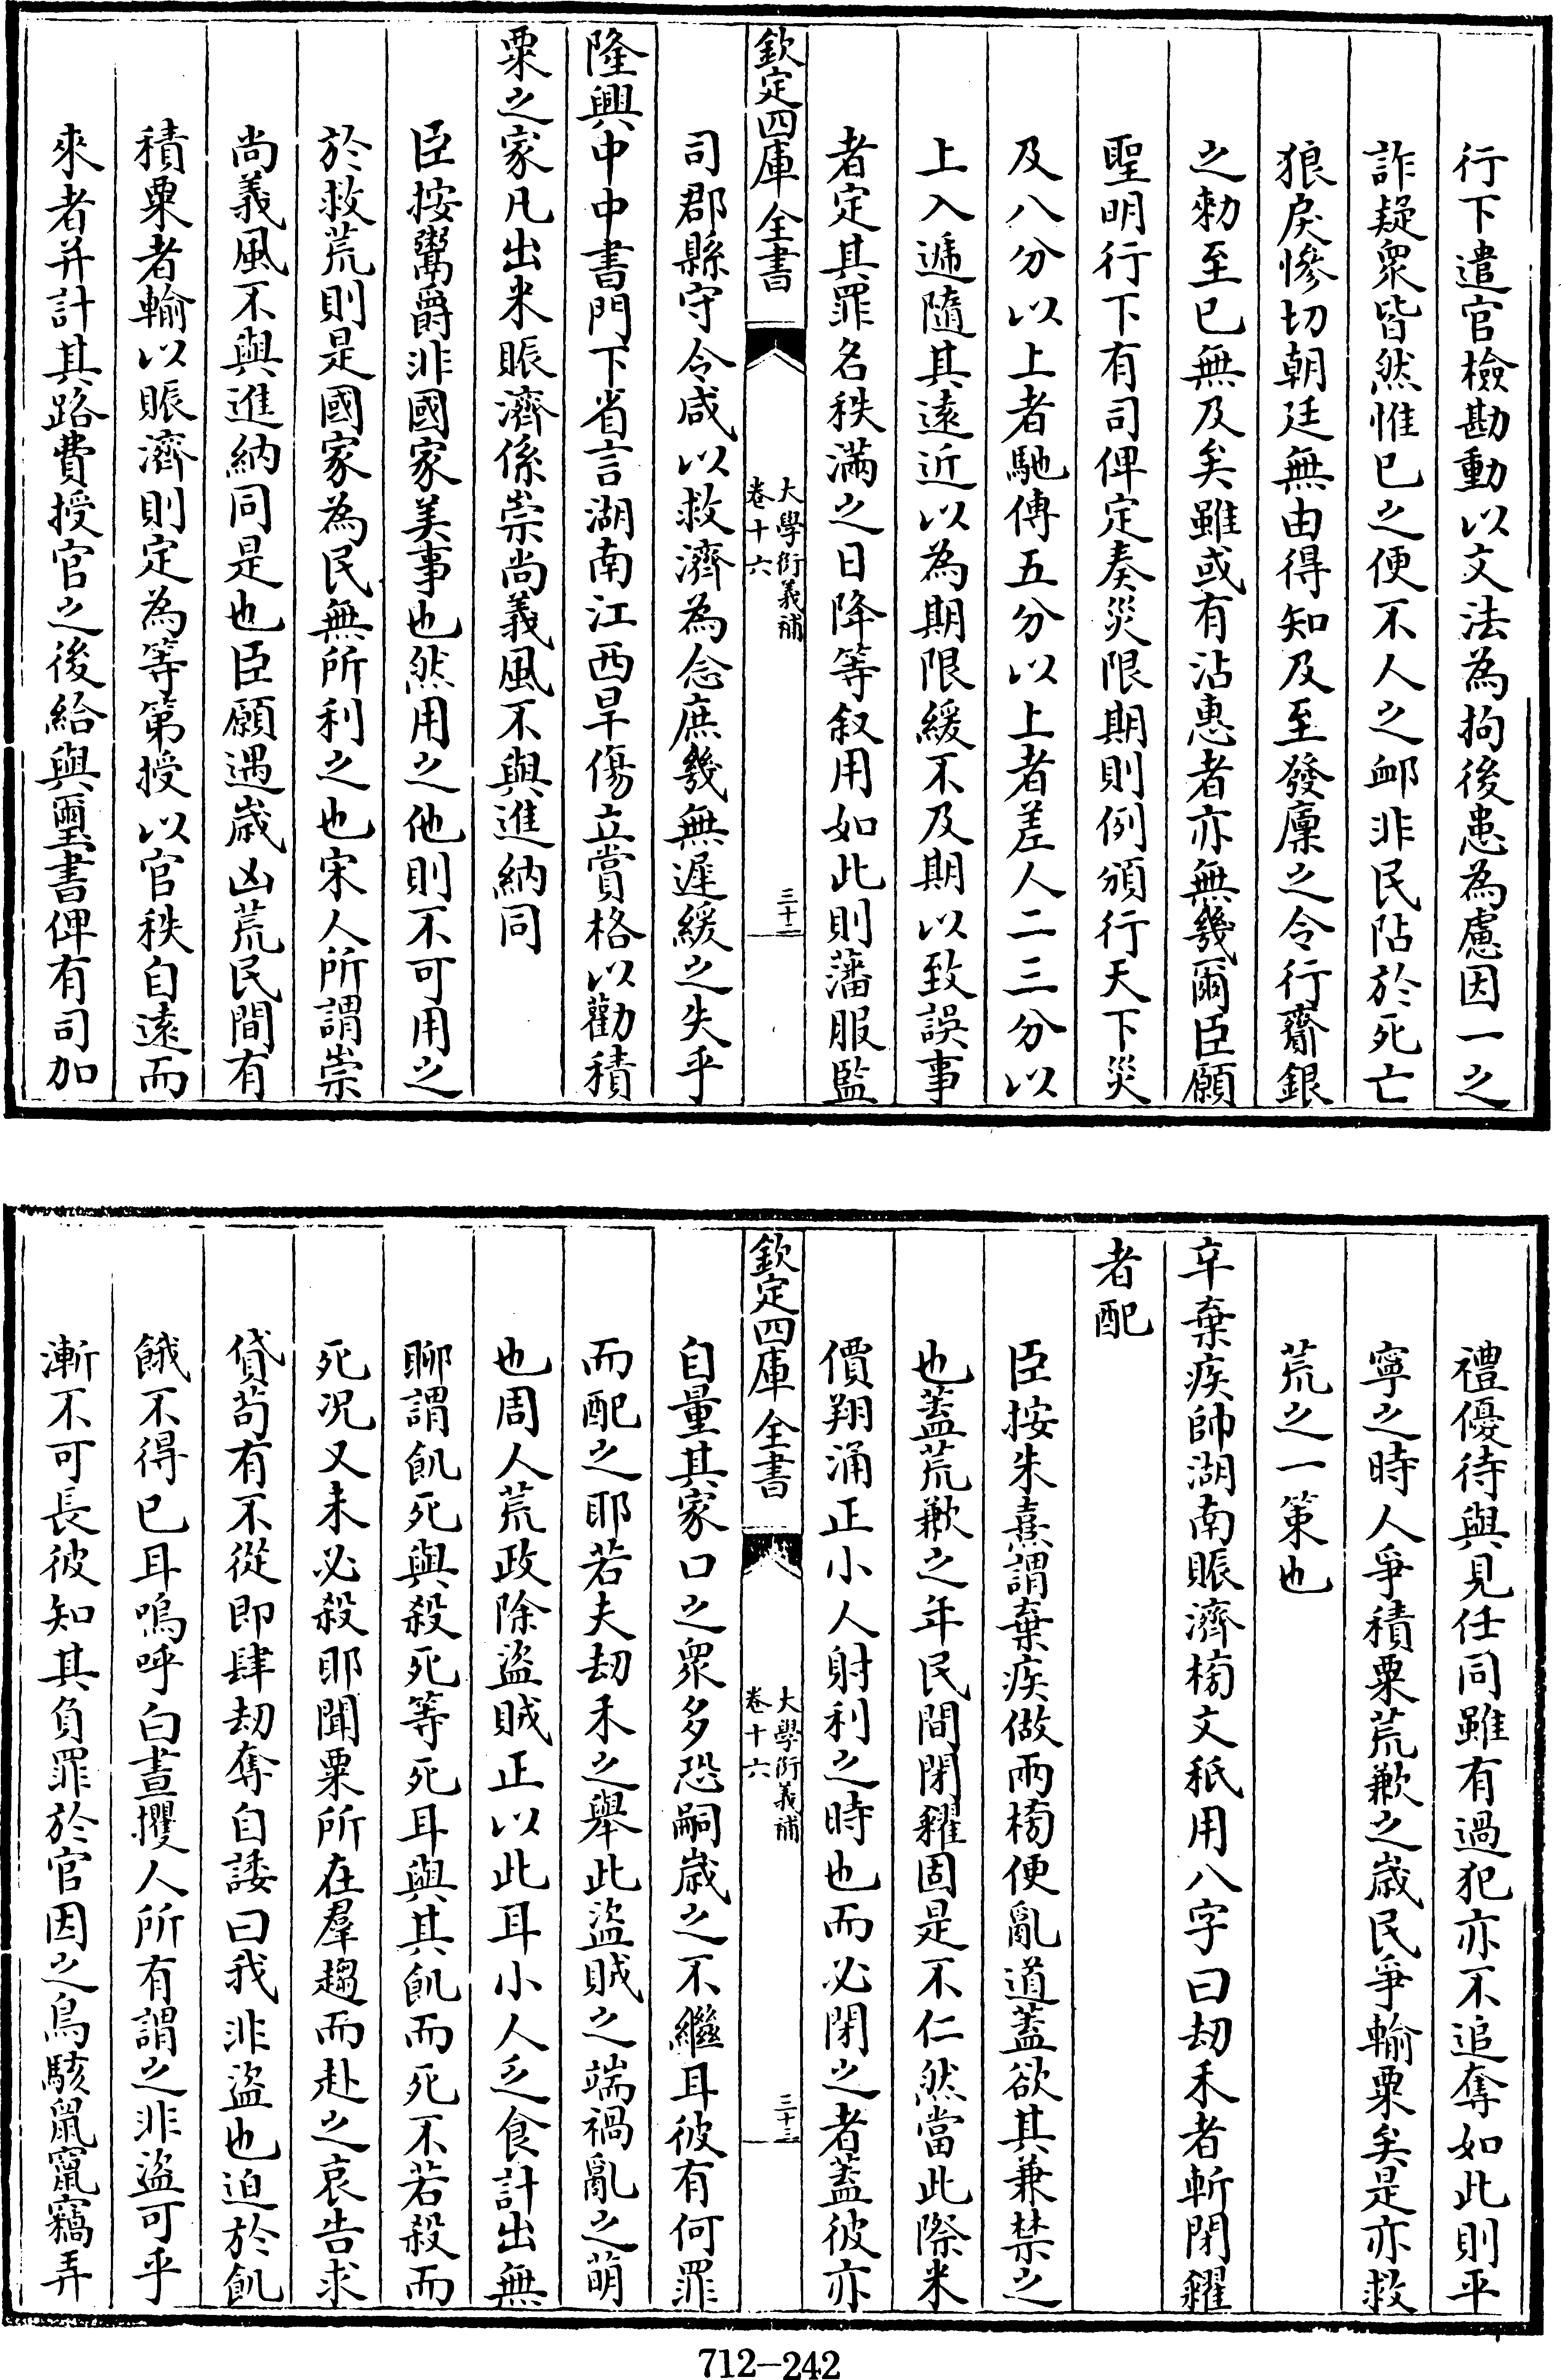 行下遣官檢勘動以文法為拘後患為慮因一之
詐疑衆皆然惟已之便不人之䘏非民阽於死亡
狼戾慘切朝廷無由得知及至發廩之令行齎銀
之勑至已無及矣雖或有沾惠者亦無幾爾臣願
聖明行下有司俾定奏災限期則例頒行天下災
及八分以上者馳傳五分以上者差人二三分以
上入遞隨其遠近以為期限緩不及期以致誤事
者定其罪名秩滿之日降等叙用如此則藩服監
欽定四庫全書
大學衍義補
卷十六
三十二
司郡縣守令咸以救濟為念庶幾無遲緩之失乎
隆興中中書門下省言湖南江西旱傷立賞格以勸積
粟之家凡出米賑濟係崇尚義風不與進納同
臣按鬻爵非國家美事也然用之他則不可用之
於救荒則是國家為民無所利之也宋人所謂崇
尚義風不與進納同是也臣願遇歲凶荒民間有
積粟者輸以賑濟則定為等第授以官秩自遠而
來者并計其路費授官之後給與璽書俾有司加
禮優待與見任同雖有過犯亦不追奪如此則平
寧之時人爭積粟荒歉之歲民爭輸粟矣是亦救
荒之一策也
辛棄疾帥湖南賑濟榜文秖用八字曰刼禾者斬閉糴
者配
臣按朱熹謂棄疾做兩榜便亂道蓋欲其兼禁之
也蓋荒歉之年民間閉糴固是不仁然當此際米
價翔涌正小人射利之時也而必閉之者蓋彼亦
欽定四庫全書
大學衍義補
卷十六
三十三
自量其家口之衆多恐嗣歲之不繼耳彼有何罪
而配之耶若夫刼禾之舉此盜賊之端禍亂之萌
也周人荒政除盜賊正以此耳小人乏食計出無
聊謂飢死與殺死等死耳與其飢而死不若殺而
死况又未必殺耶聞粟所在羣趨而赴之哀告求
貸茍有不從即肆刼奪自諉曰我非盜也迫於飢
餓不得已耳嗚呼白晝攫人所有謂之非盜可乎
漸不可長彼知其負罪於官因之鳥駭鼠竄竊弄
712-242